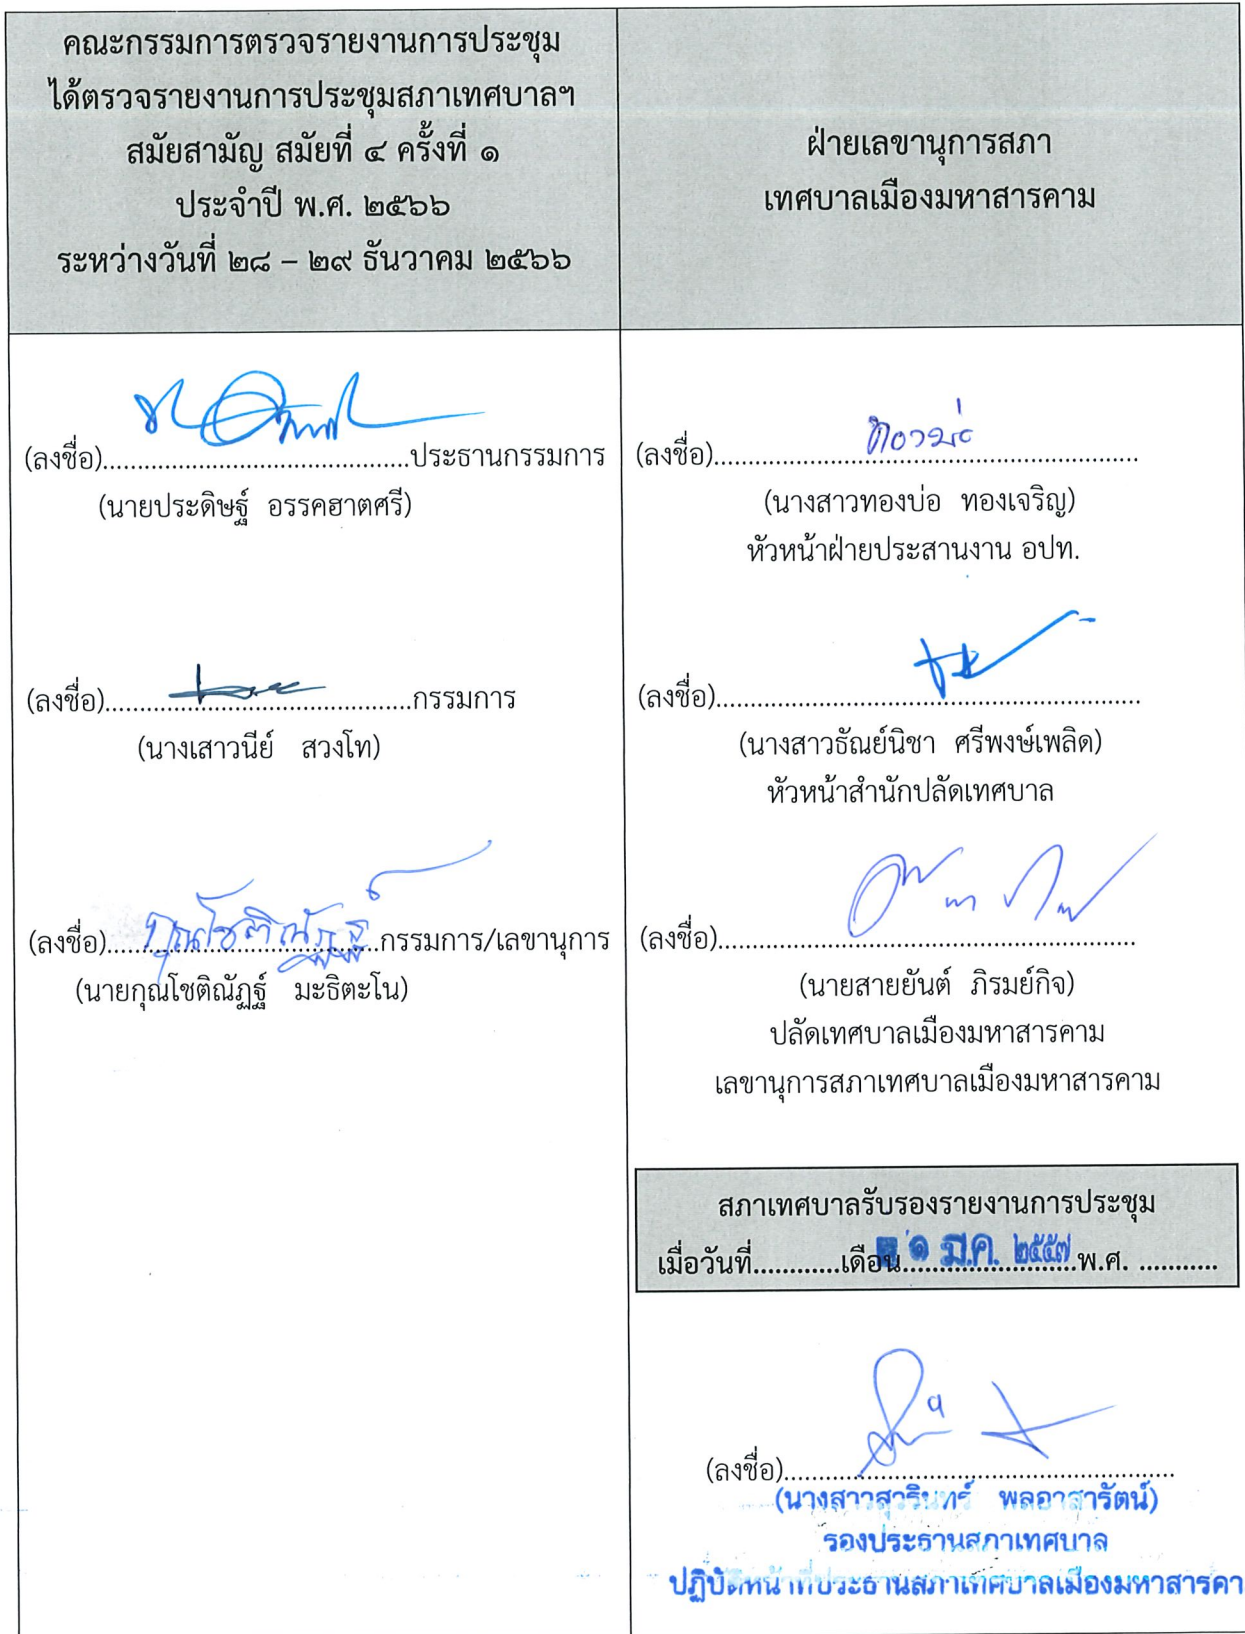 คณะกรรมการตรวจรายงานการประชุม
ได้ตรวจรายงานการประชุมสภาเทศบาลฯ
สมัยสามัญ สมัยที่ ๔ ครั้งที่ ๑
ประจำปี พ.ศ. ๒๕๖๖
ระหว่างวันที่ ๒๘ – ๒๙ ธันวาคม ๒๕๖๖
(ลงชื่อ)............................................ประธานกรรมการ
(นายประดิษฐ์ อรรคฮาตศรี)
(ลงชื่อ)............................................กรรมการ
(นางเสาวนีย์ สวงโท)
(ลงชื่อ) กุณโชติณัฏฐ์ กรรมการ/เลขานุการ
(นายกุณโชติณัฏฐ์ มะธิตะโน)
ฝ่ายเลขานุการสภา
เทศบาลเมืองมหาสารคาม
(ลงชื่อ) ทองบ่อ
(นางสาวทองบ่อ ทองเจริญ)
หัวหน้าฝ่ายประสานงาน อปท.
(ลงชื่อ)............................................................
(นางสาวธัณย์นิชา ศรีพงษ์เพลิด)
หัวหน้าสำนักปลัดเทศบาล
(ลงชื่อ)............................................................
(นายสายยันต์ ภิรมย์กิจ)
ปลัดเทศบาลเมืองมหาสารคาม
เลขานุการสภาเทศบาลเมืองมหาสารคาม
สภาเทศบาลรับรองรายงานการประชุม
เมื่อวันที่............เดือน ๑ มี.ค. พ.ศ. ...........
(ลงชื่อ)........................................................
(นางสาวสุวรินทร์ พลอาสารัตน์)
รองประธานสภาเทศบาล
ปฏิบัติหน้าที่ประธานสภาเทศบาลเมืองมหาสารคา